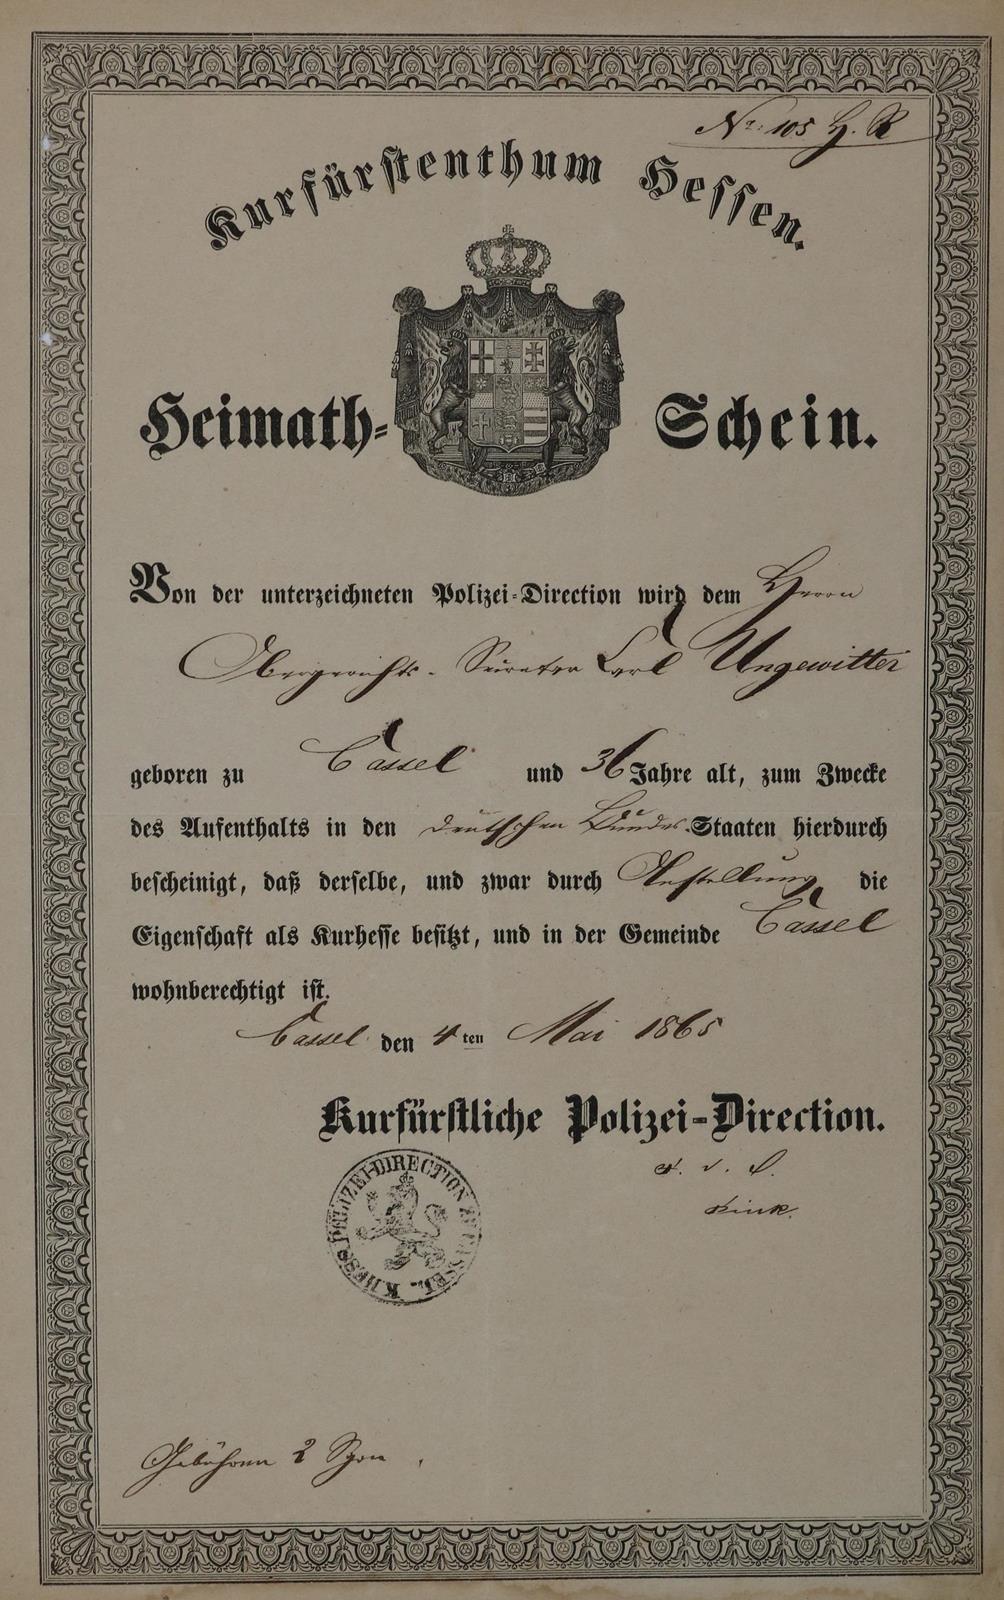 Nr. 105 H. R
Kurfürstenthum Hessen.
Heimath-Schein.
Von der unterzeichneten Polizei-Direction wird dem Herrn
Obergerichts-Secretar Carl Ungewitter
geboren zu Cassel und 36 Jahre alt, zum Zwecke
des Aufenthalts in den deutschen Bundes-Staaten hierdurch
bescheinigt, daß derselbe, und zwar durch Anstellung, die
Eigenschaft als Kurhesse besitzt, und in der Gemeinde Cassel
wohnberechtigt ist.
Cassel den 4ten Mai 1865
Kurfürstliche Polizei-Direction.
POLIZEI-DIRECTION ZU CASSEL. KHESS.
Gebühren 2 Sgr